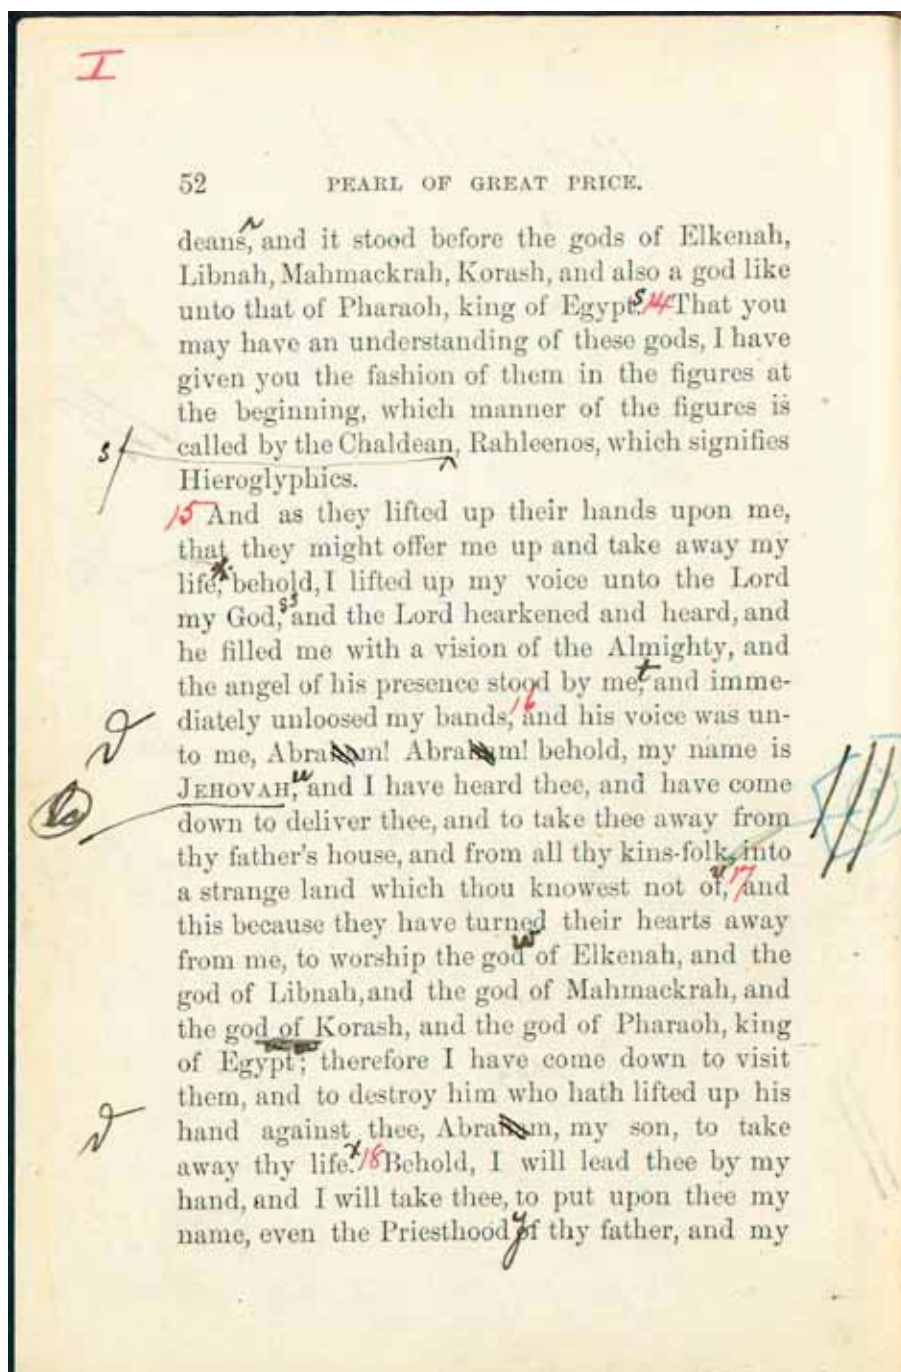 I
52 PEARL OF GREAT PRICE.
deans, and it stood before the gods of Elkenah,
Libnah, Mahmackrah, Korash, and also a god like
unto that of Pharaoh, king of Egypt. s 14 That you
may have an understanding of these gods, I have
given you the fashion of them in the figures at
the beginning, which manner of the figures is
s called by the Chaldean, Rahleenos, which signifies
Hieroglyphics.
15 And as they lifted up their hands upon me,
that they might offer me up and take away my
life, behold, I lifted up my voice unto the Lord
my God, and the Lord hearkened and heard, and
he filled me with a vision of the Almighty, and
the angel of his presence stood by me, t and imme-
diately unloosed my bands, 16 and his voice was un-
to me, Abraham! Abraham! behold, my name is
JEHOVAH, u and I have heard thee, and have come
down to deliver thee, and to take thee away from
thy father's house, and from all thy kins-folk, into
a strange land which thou knowest not of, v 17 and
this because they have turned their hearts away
from me, to worship the god w of Elkenah, and the
god of Libnah, and the god of Mahmackrah, and
the god of Korash, and the god of Pharaoh, king
of Egypt; therefore I have come down to visit
them, and to destroy him who hath lifted up his
hand against thee, Abraham, my son, to take
away thy life. x 18 Behold, I will lead thee by my
hand, and I will take thee, to put upon thee my
name, even the Priesthood y of thy father, and my